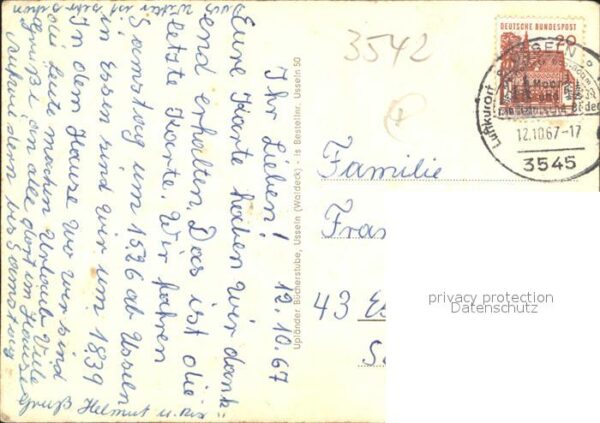 Ihr Lieben! 12.10.67
Eure Karte haben wir dank-
end erhalten. Das ist die
letzte Karte. Wir fahren
Samstag um 1526 ab Usseln
in Essen sind wir um 1839
In dem Hause wo wir sind
die Leute machen Urlaub Viele
Grüße an alle dort im Hause
bis Samstag
Gruß Helmut u.
Das Wetter ist sehr schön
Upländer Bücherstube, Usseln (Waldeck) - Is Bestellnr. Usseln 50
3542
DEUTSCHE BUNDESPOST
20
Luftkurort
USSELN
Moor
und
12.10.67-17
3545
Familie
Fran
43 Es
privacy protection
Datenschutz